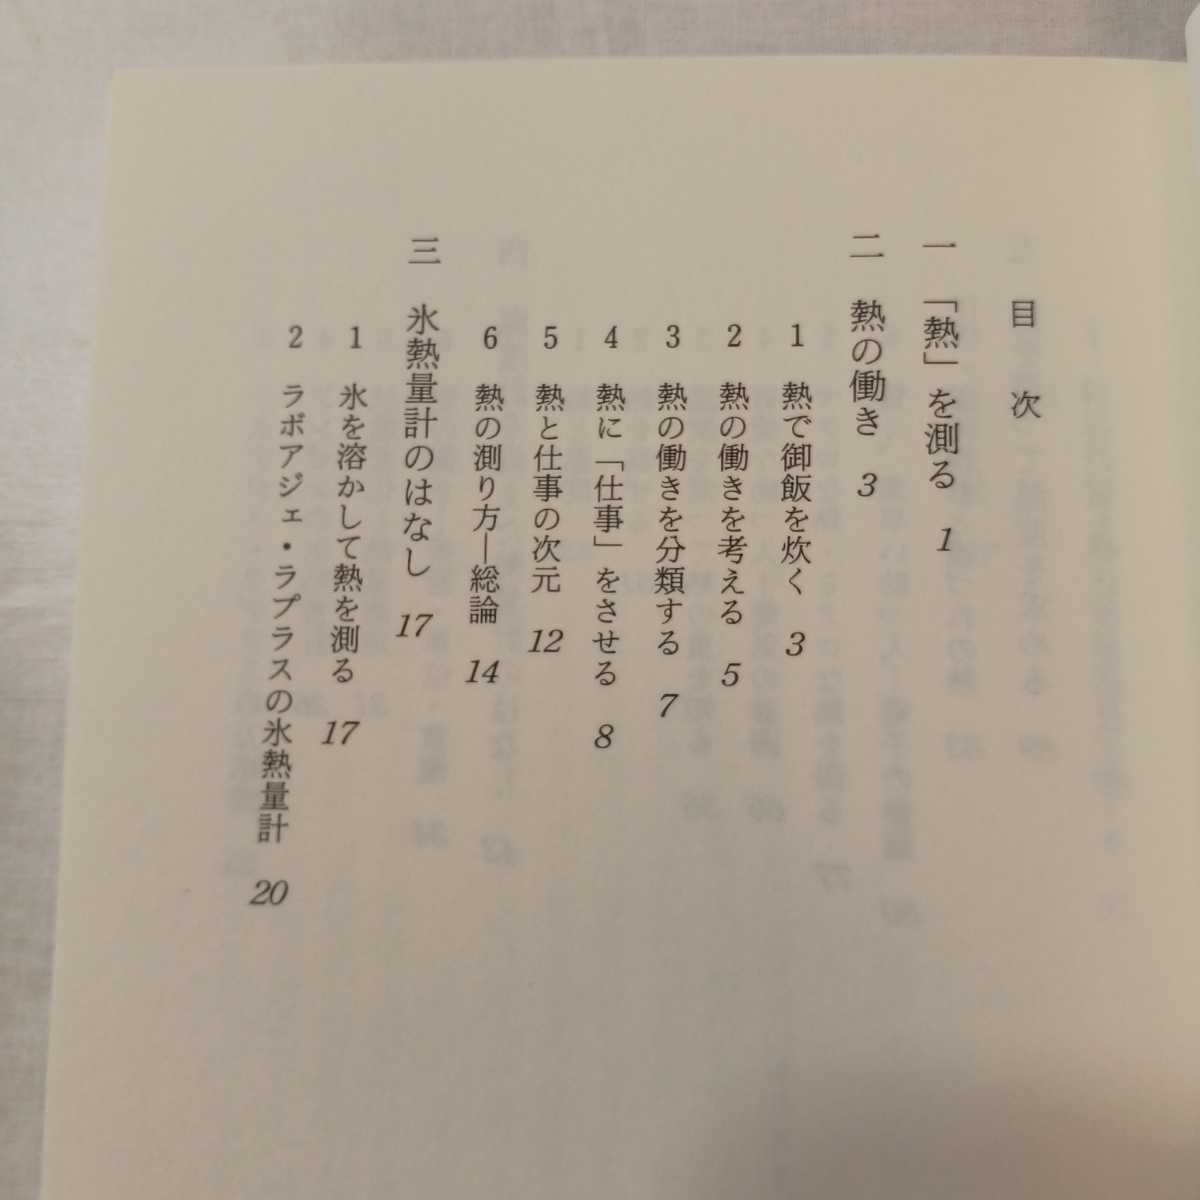 目次
一 「熱」を測る 1
二 熱の働き 3
1 熱で御飯を炊く 3
2 熱の働きを考える 5
3 熱の働きを分類する 7
4 熱に「仕事」をさせる 8
5 熱と仕事の次元 12
6 熱の測り方―総論 14
三 氷熱量計のはなし 17
1 氷を溶かして熱を測る 17
2 ラボアジェ・ラプラスの氷熱量計 20